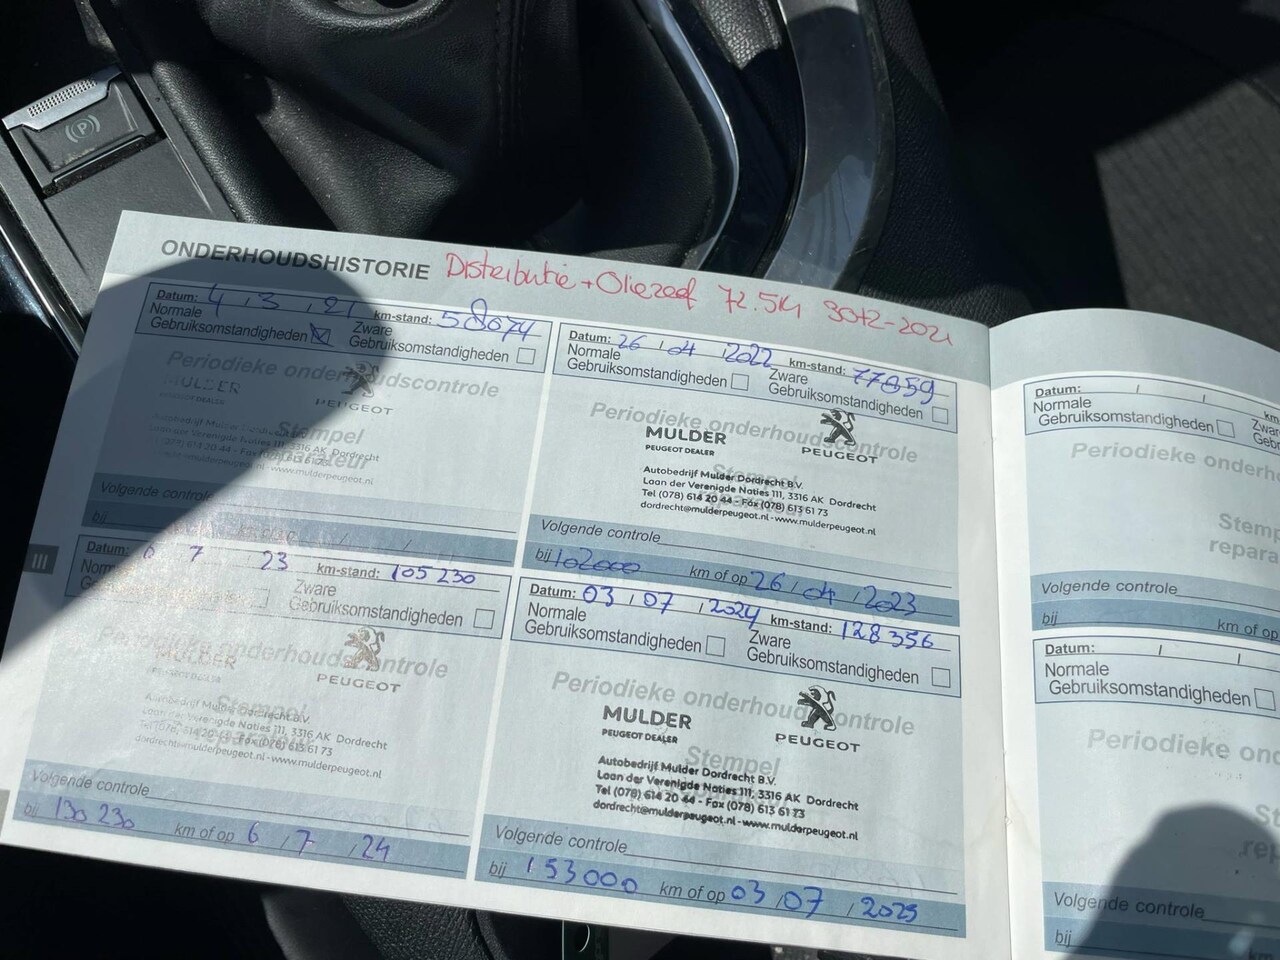 ONDERHOUDSHISTORIE Distributie + Oliezeef 72.514 30-12-2021
Datum: 4 / 3 / 21 km-stand: 58074
Normale Gebruiksomstandigheden Zware Gebruiksomstandigheden
Periodieke onderhoudscontrole
MULDER
PEUGEOT DEALER
PEUGEOT
Stempel reparateur
Autobedrijf Mulder Dordrecht B.V.
Laan der Verenigde Naties 111, 3316 AK Dordrecht
dordrecht@mulderpeugeot.nl - www.mulderpeugeot.nl
Volgende controle
bij
Datum: 26 / 04 / 2022 km-stand: 77859
Normale Gebruiksomstandigheden Zware Gebruiksomstandigheden
Periodieke onderhoudscontrole
MULDER
PEUGEOT DEALER
PEUGEOT
Stempel reparateur
Autobedrijf Mulder Dordrecht B.V.
Laan der Verenigde Naties 111, 3316 AK Dordrecht
Tel (078) 614 20 44 - Fax (078) 613 61 73
dordrecht@mulderpeugeot.nl - www.mulderpeugeot.nl
Volgende controle
bij 102000 km of op 26 / 04 / 2023
III
Datum: 6 7 23 km-stand: 105230
Zware Gebruiksomstandigheden
Periodieke onderhoudscontrole
MULDER
PEUGEOT DEALER
PEUGEOT
Stempel reparateur
Autobedrijf Mulder Dordrecht B.V.
Laan der Verenigde Naties 111, 3316 AK Dordrecht
Tel (078) 614 20 44 - Fax (078) 613 61 73
dordrecht@mulderpeugeot.nl - www.mulderpeugeot.nl
Volgende controle
bij 130 230 km of op 6 / 7 / 24
Datum: 03 / 07 / 2024 km-stand: 128356
Normale Gebruiksomstandigheden Zware Gebruiksomstandigheden
Periodieke onderhoudscontrole
MULDER
PEUGEOT DEALER
PEUGEOT
Stempel
Autobedrijf Mulder Dordrecht B.V.
Laan der Verenigde Naties 111, 3316 AK Dordrecht
Tel (078) 614 20 44 - Fax (078) 613 61 73
dordrecht@mulderpeugeot.nl - www.mulderpeugeot.nl
Volgende controle
bij 153000 km of op 03 / 07 / 2025
Datum: / / km
Normale Gebruiksomstandigheden
Periodieke onderh
Stemp
repara
Volgende controle
bij km of op
Datum: / /
Normale Gebruiksomstandigheden
Periodieke ond
Volgende controle
bij km